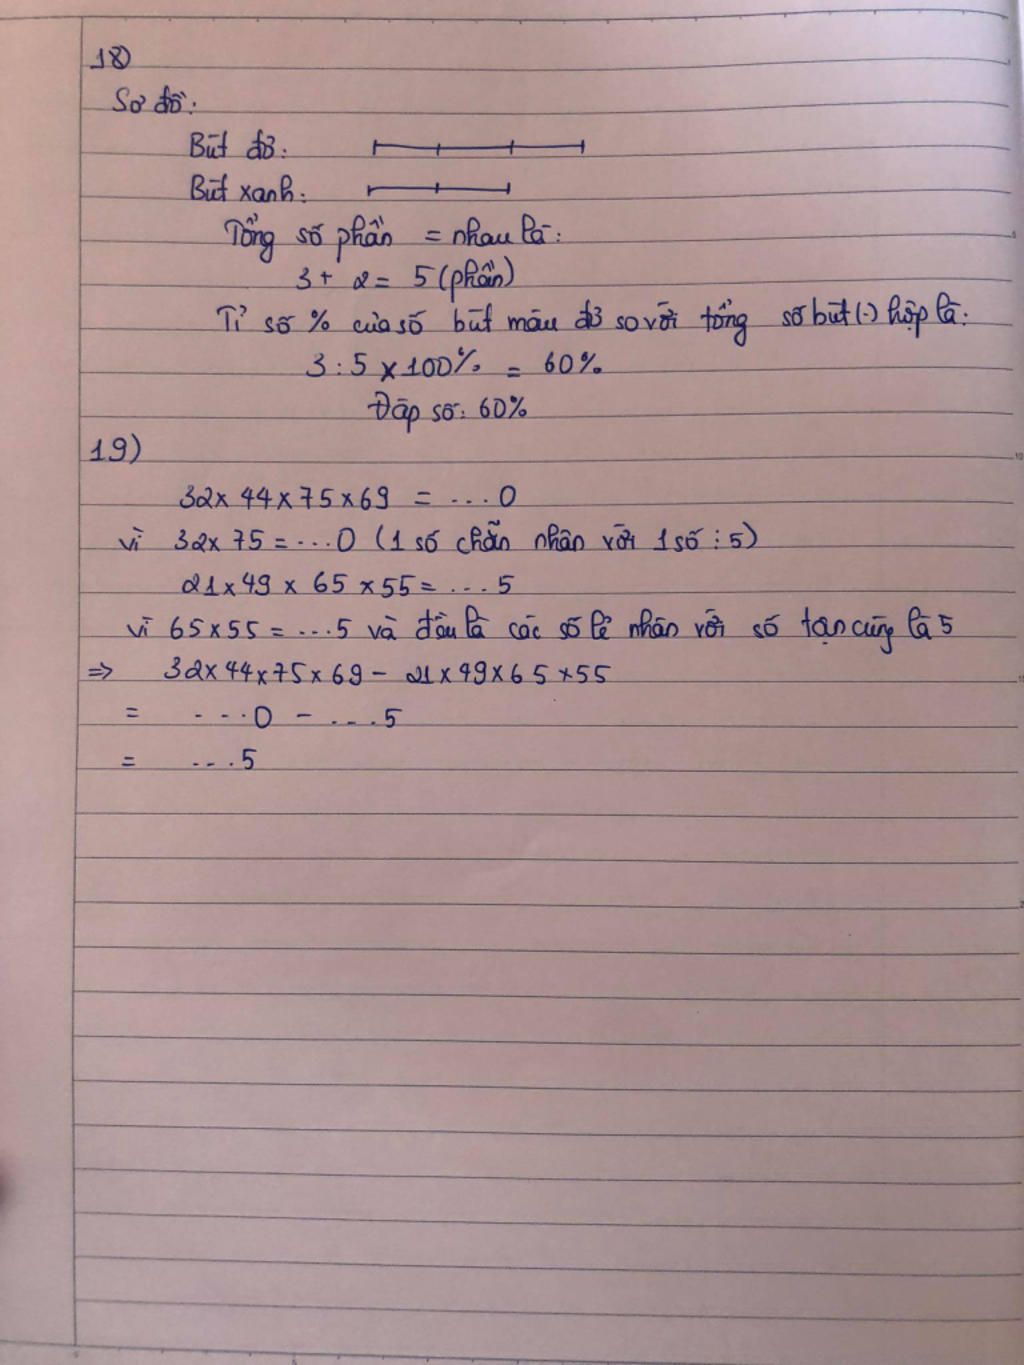 18)
Sơ đồ:
Bút đỏ:
Bút xanh:
Tổng số phần = nhau là:
3 + 2 = 5 (phần)
Tỉ số % của số bút màu đỏ so với tổng số bút (.) hộp là:
3 : 5 x 100% = 60%
Đáp số: 60%
19)
32 x 44 x 75 x 69 = ...0
vì 32 x 75 = ...0 (1 số chẵn nhân với 1 số : 5)
21 x 49 x 65 x 55 = ...5
vì 65 x 55 = ...5 và đều là các số lẻ nhân với số tận cùng là 5
=> 32 x 44 x 75 x 69 - 21 x 49 x 65 x 55
= ...0 - ....5
= ...5